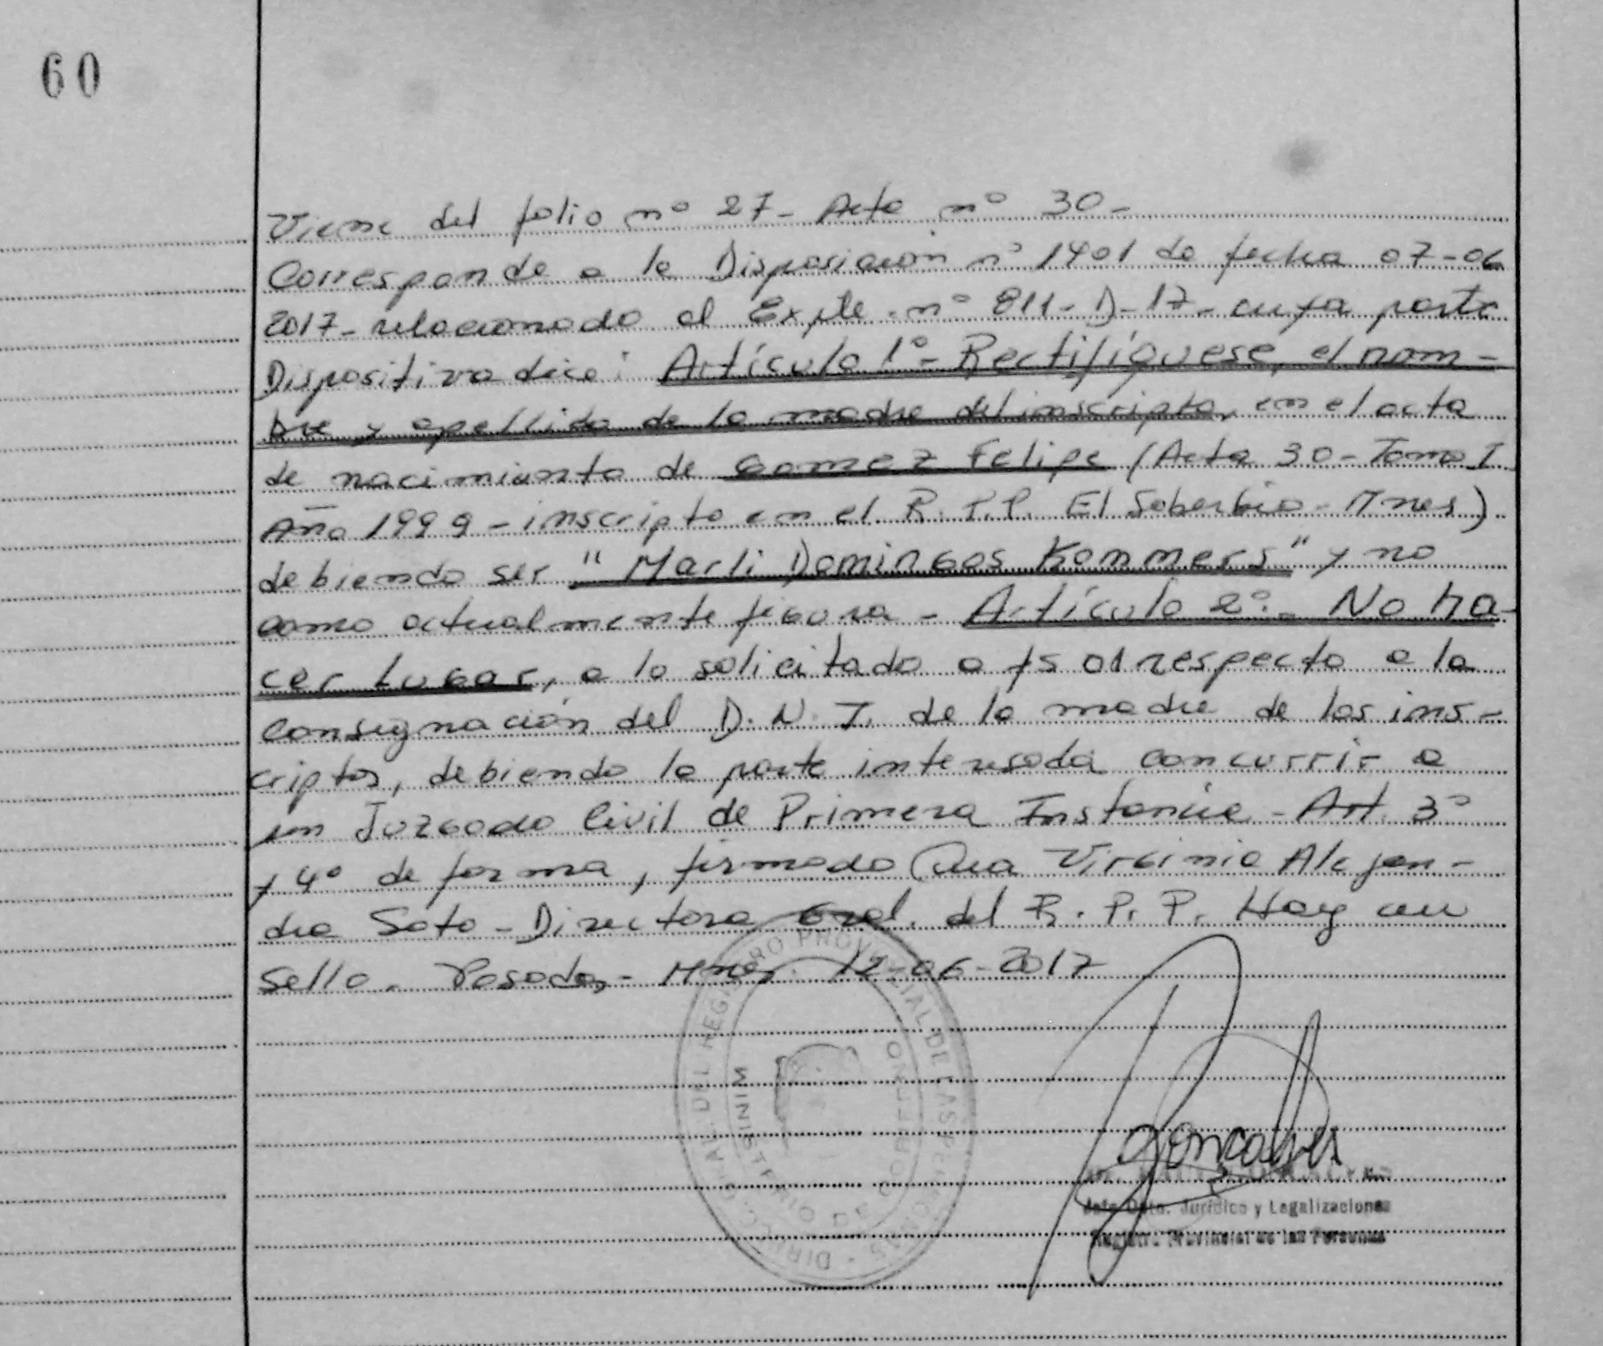 60
Viene del folio nº 27- Acta nº 30-
Corresponde a la Disposición nº 1401 de fecha 07-06
2017- relacionado al Expte. nº 811- D-17- cuya parte
Dispositiva dice: Artículo 1º- Rectifíquese, el nom-
bre y apellido de la madre del inscripto, en el acta
de nacimiento de Gomez Felipe (Acta 30- Tomo I
Año 1999- inscripto en el R. P.P. El Soberbio- Mnes)
debiendo ser "Marli Domingos Kommers" y no
como actualmente figura- Artículo 2º.- No ha-
cer Lugar, a lo solicitado a fs 01 respecto a la
consignación del D. N. I. de la madre de los ins-
criptos, debiendo la parte interesada concurrir a
un Juzgado Civil de Primera Instancia- Art. 3º
y 4º de forma, firmado Virginia Alejan-
dra Soto- Directora Gral. del R. P. P. Hay un
Sello. Posadas,- Mnes. 12-06-2017
DIRECC. GRAL. DEL REGISTRO PROVINCIAL DE LAS PERSONAS -
MINISTERIO DE GOBIERNO
Jefe Dpto. Jurídico y Legalizaciones
Registro Provincial de las Personas